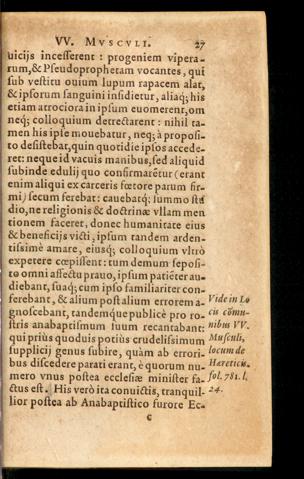 VV. MVSCVLI. 27
uicijs incesserent : progeniem vipera-
rum, & Pseudoprophetam vocantes, qui
sub vestitu ouium lupum rapacem alat,
& ipsorum sanguini insidietur, aliaq; his
etiam atrociora in ipsum euomerent, om
neq; colloquium detrectarent : nihil ta-
men his ipse mouebatur, neq; à proposi-
to desistebat, quin quotidie ipsos accede-
ret: neque id vacuis manibus, sed aliquid
subinde edulij quo confirmarẽtur (erant
enim aliqui ex carceris fœtore parum fir-
mi) secum ferebat: cauebatq; summo stu
dio, ne religionis & doctrinæ vllam men
tionem faceret, donec humanitate eius
& beneficijs victi, ipsum tandem arden-
tissimè amare, eiusq; colloquium vltrò
expetere cœpissent: tum demum seposi-
to omni affectu prauo, ipsum patiẽter au-
diebant, suaq; cum ipso familiariter con-
ferebant, & alium post alium errorem a-
gnoscebant, tandemque publicè pro ro-
stris anabaptismum suum recantabant:
qui priùs quoduis potiùs crudelissimum
supplicij genus subire, quàm ab errori-
bus discedere parati erant, è quorum nu-
mero vnus postea ecclesiæ minister fa-
ctus est. His verò ita conuictis, tranquil-
lior postea ab Anabaptistico furore Ec-
c
Vide in Lo
cis cõmu-
nibus VV.
Musculi,
locum de
Hæreticis.
fol. 781. l.
24.